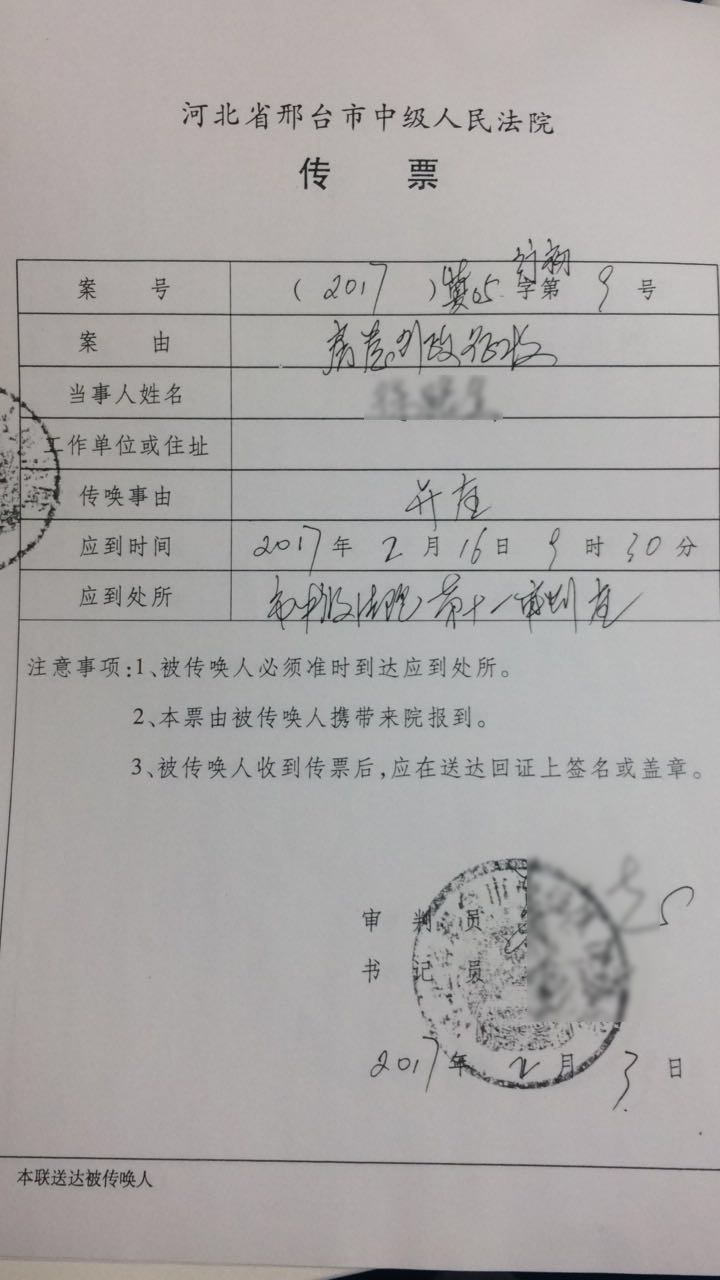 河北省邢台市中级人民法院
传 票
案 号 (2017)冀05行初字第9号
案 由 房屋行政征收
当事人姓名
工作单位或住址
传唤事由 开庭
应到时间 2017年2月16日9时30分
应到处所 市中级法院第十一审判庭
注意事项:1、被传唤人必须准时到达应到处所。
2、本票由被传唤人携带来院报到。
3、被传唤人收到传票后,应在送达回证上签名或盖章。
审 判 员
书 记 员
2017年2月3日
本联送达被传唤人